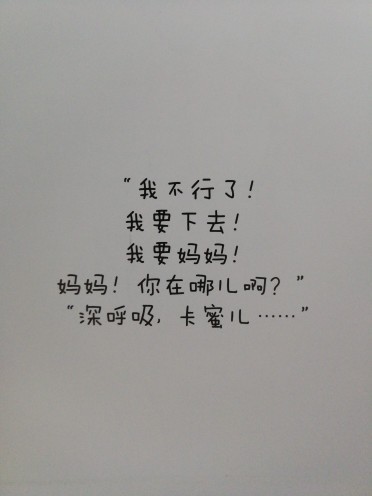 “我不行了！
我要下去！
我要妈妈！
妈妈！你在哪儿啊？”
“深呼吸，卡蜜儿……”